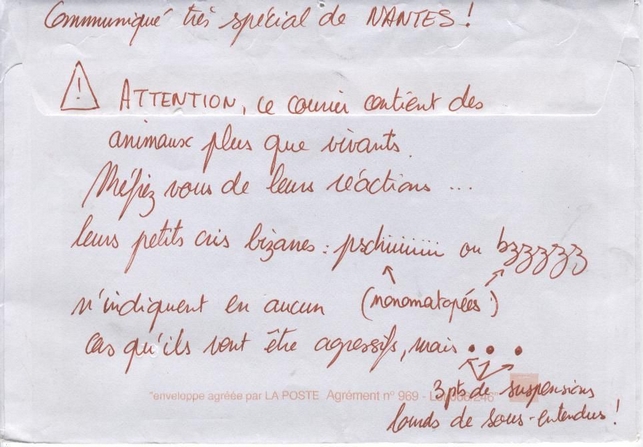 Communiqué très spécial de NANTES !
! ATTENTION, ce courrier contient des
animaux plus que vivants.
Méfiez vous de leurs réactions ...
leurs petits cris bizarres : pschiiiiiiii ou bzzzzzz
n'indiquent en aucun (monomatopées)
cas qu'ils vont être agressifs, mais ...
3 pts de suspensions
lourds de sous-entendus !
"enveloppe agréée par LA POSTE Agrément n° 969 -